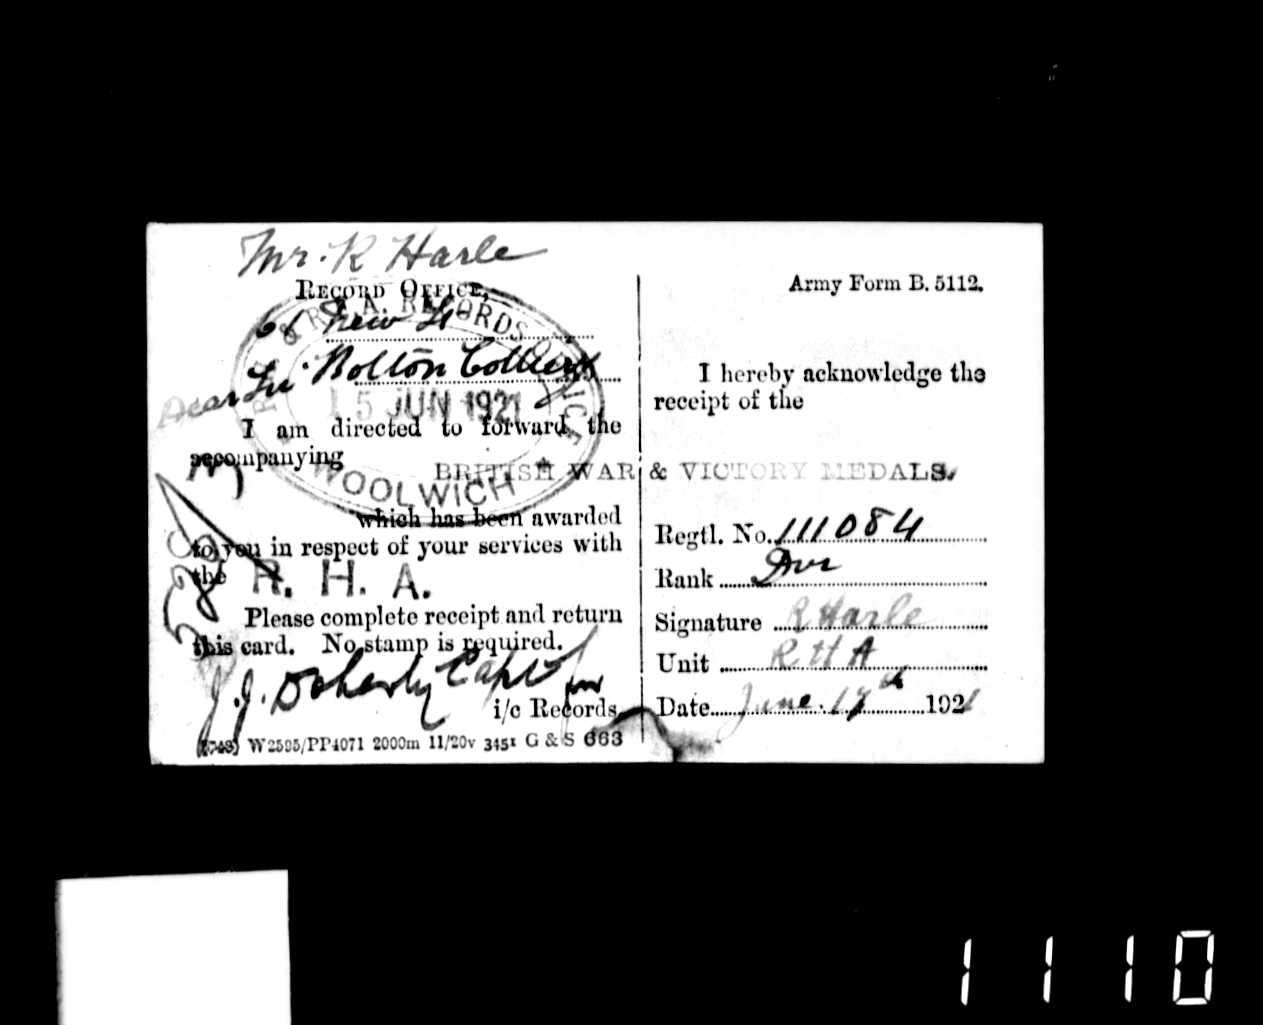 Mr. R Harle
RECORD OFFICE,
61 New St
Bolton Colliery
Dear Sir
R.H. & R.F.A. RECORDS OFFICE
15 JUN 1921
WOOLWICH
I am directed to forward the
accompanying
BRITISH WAR & VICTORY MEDALS.
which has been awarded
to you in respect of your services with
the R. H. A.
Please complete receipt and return
this card. No stamp is required.
J. J. Doherty Capt for
i/c Records
W2595/PP4071 2000m 11/20v 3451 G & S 663
Army Form B. 5112.
I hereby acknowledge the
receipt of the
Regtl. No. 111084
Rank Dvr
Signature R Harle
Unit R H A
Date June 17th 1921
1110